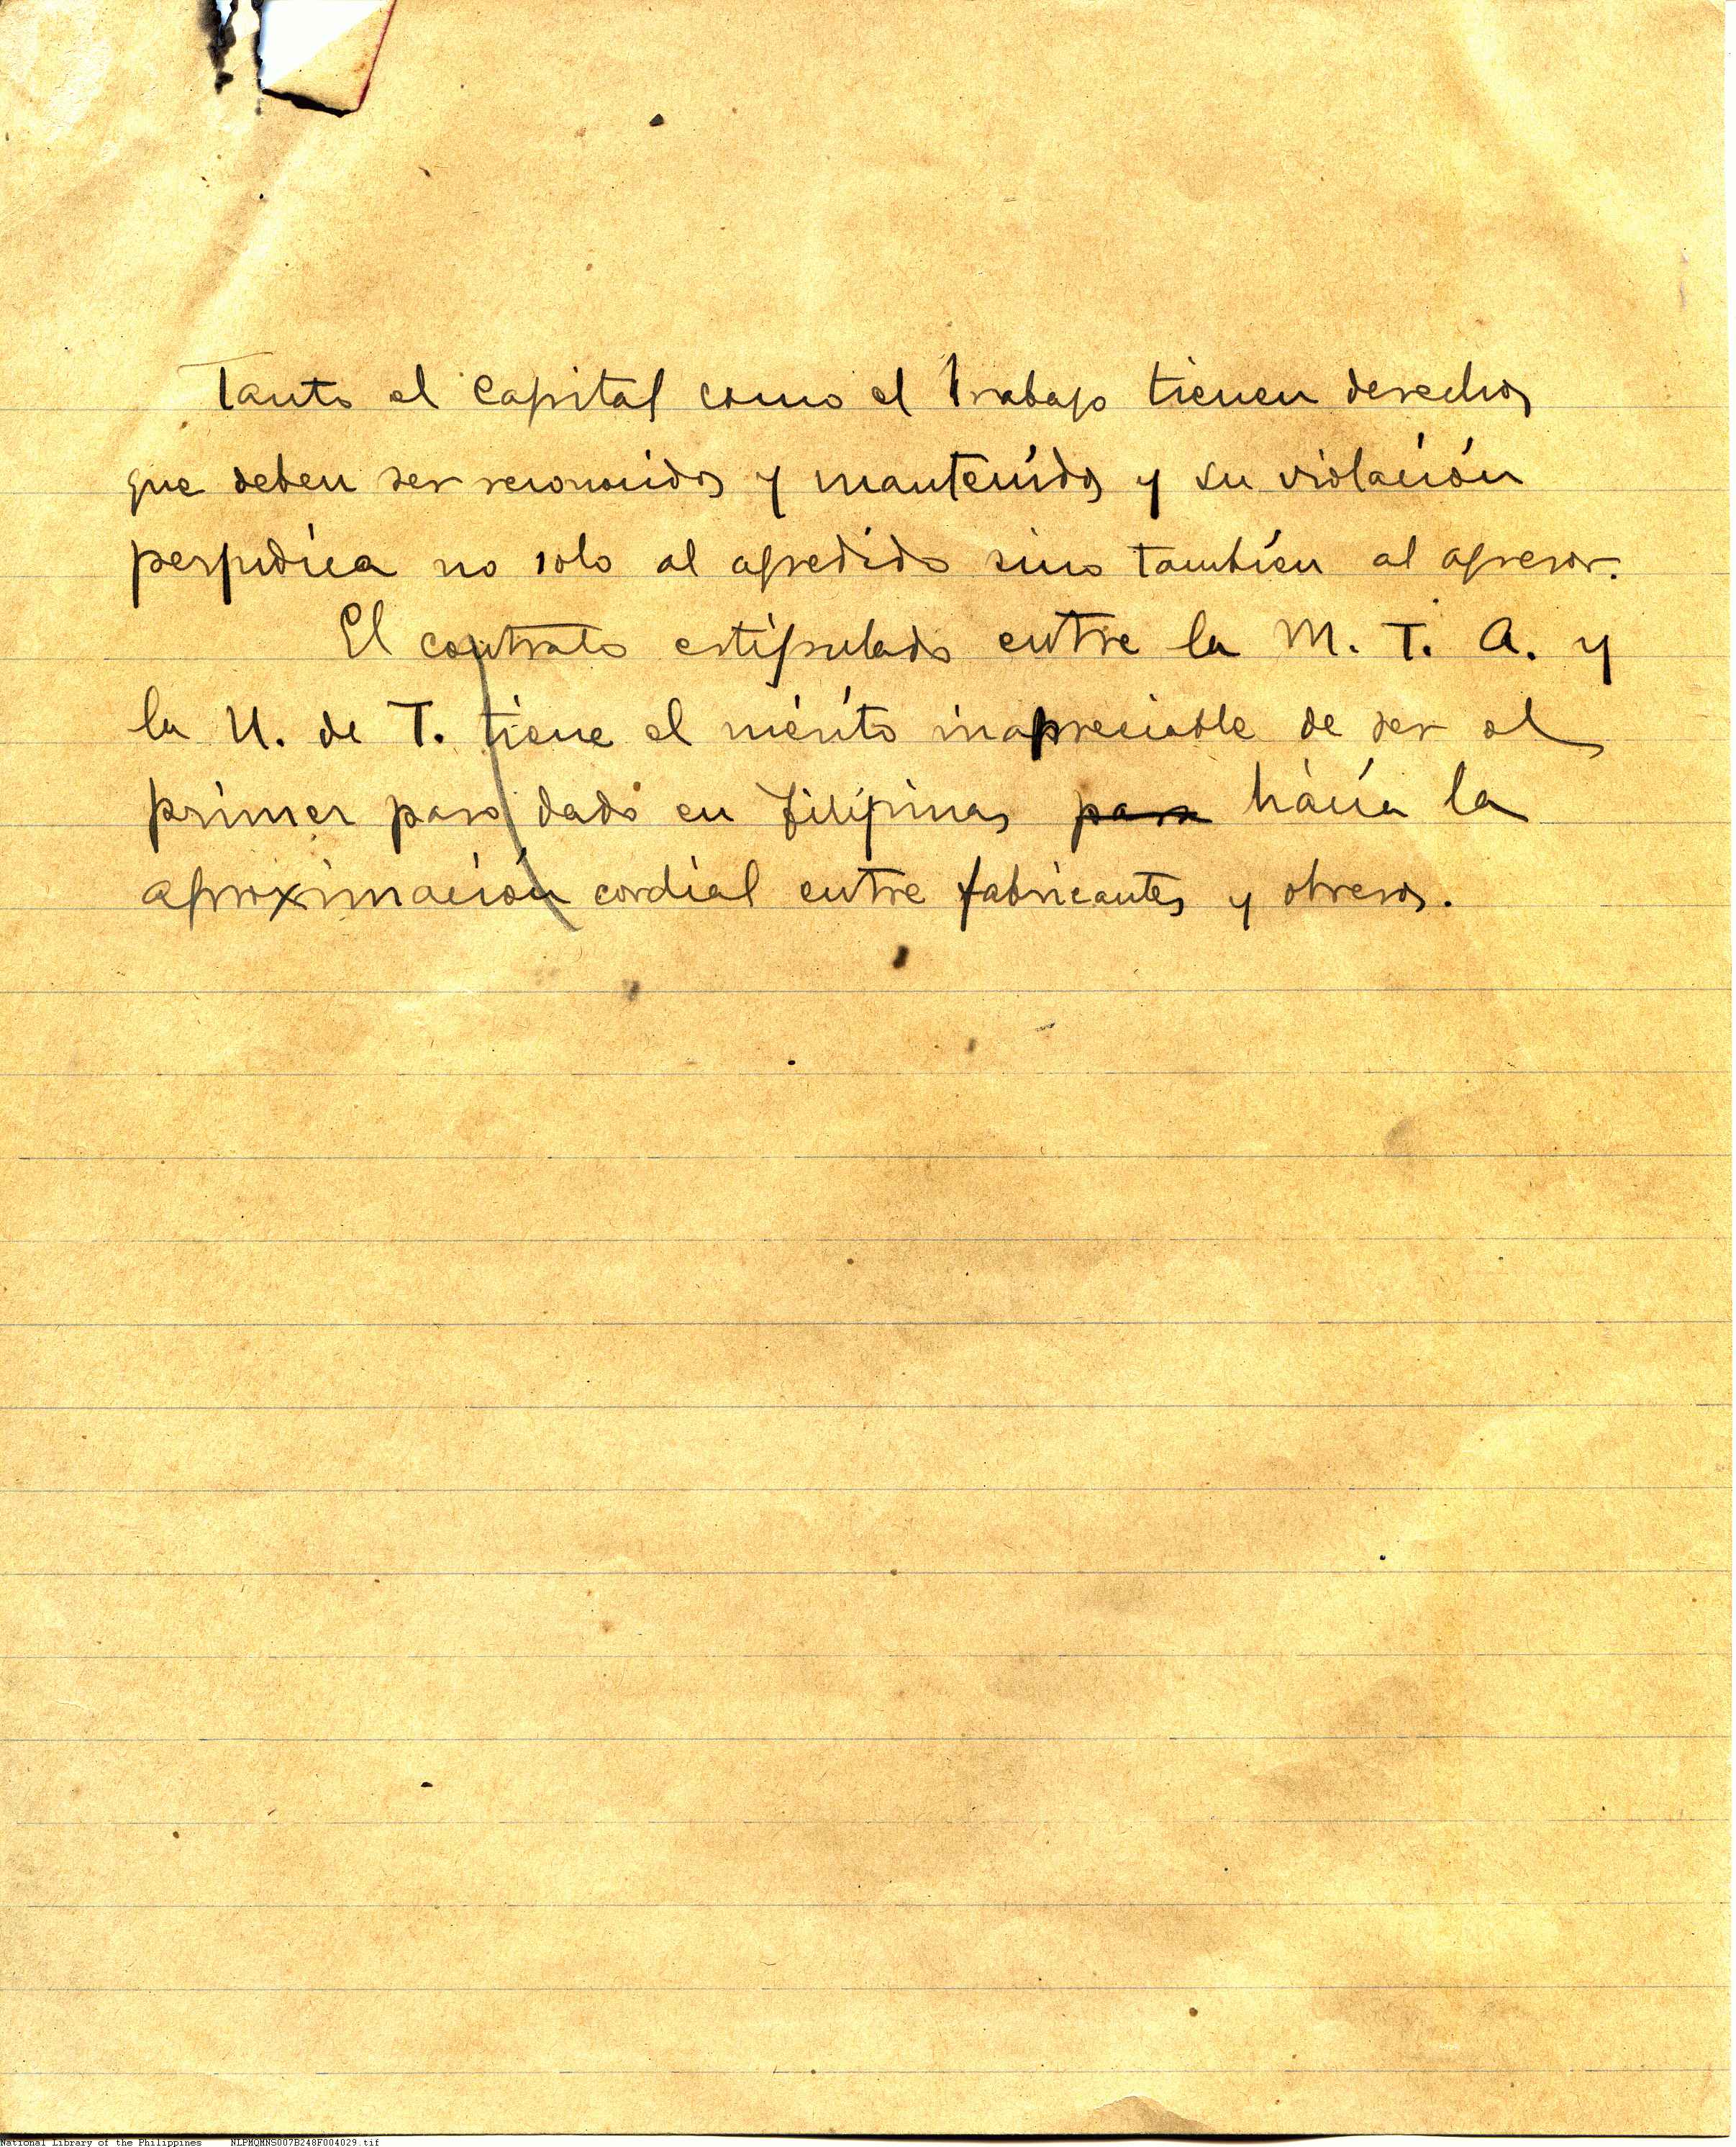 Tanto el Capital como el Trabajo tienen derechos
que deben ser reconocidos y mantenidos y su violación
perjudica no solo al agredido sino también al agresor.
El contrato estipulado entre la M. T. A. y
la U. de T. tiene el mérito inapreciable de ser el
primer paso dado en Filipinas para hácia la
aproximación cordial entre fabricantes y obreros.
National Library of the Philippines NLPMQMNS007B248F004029.tif